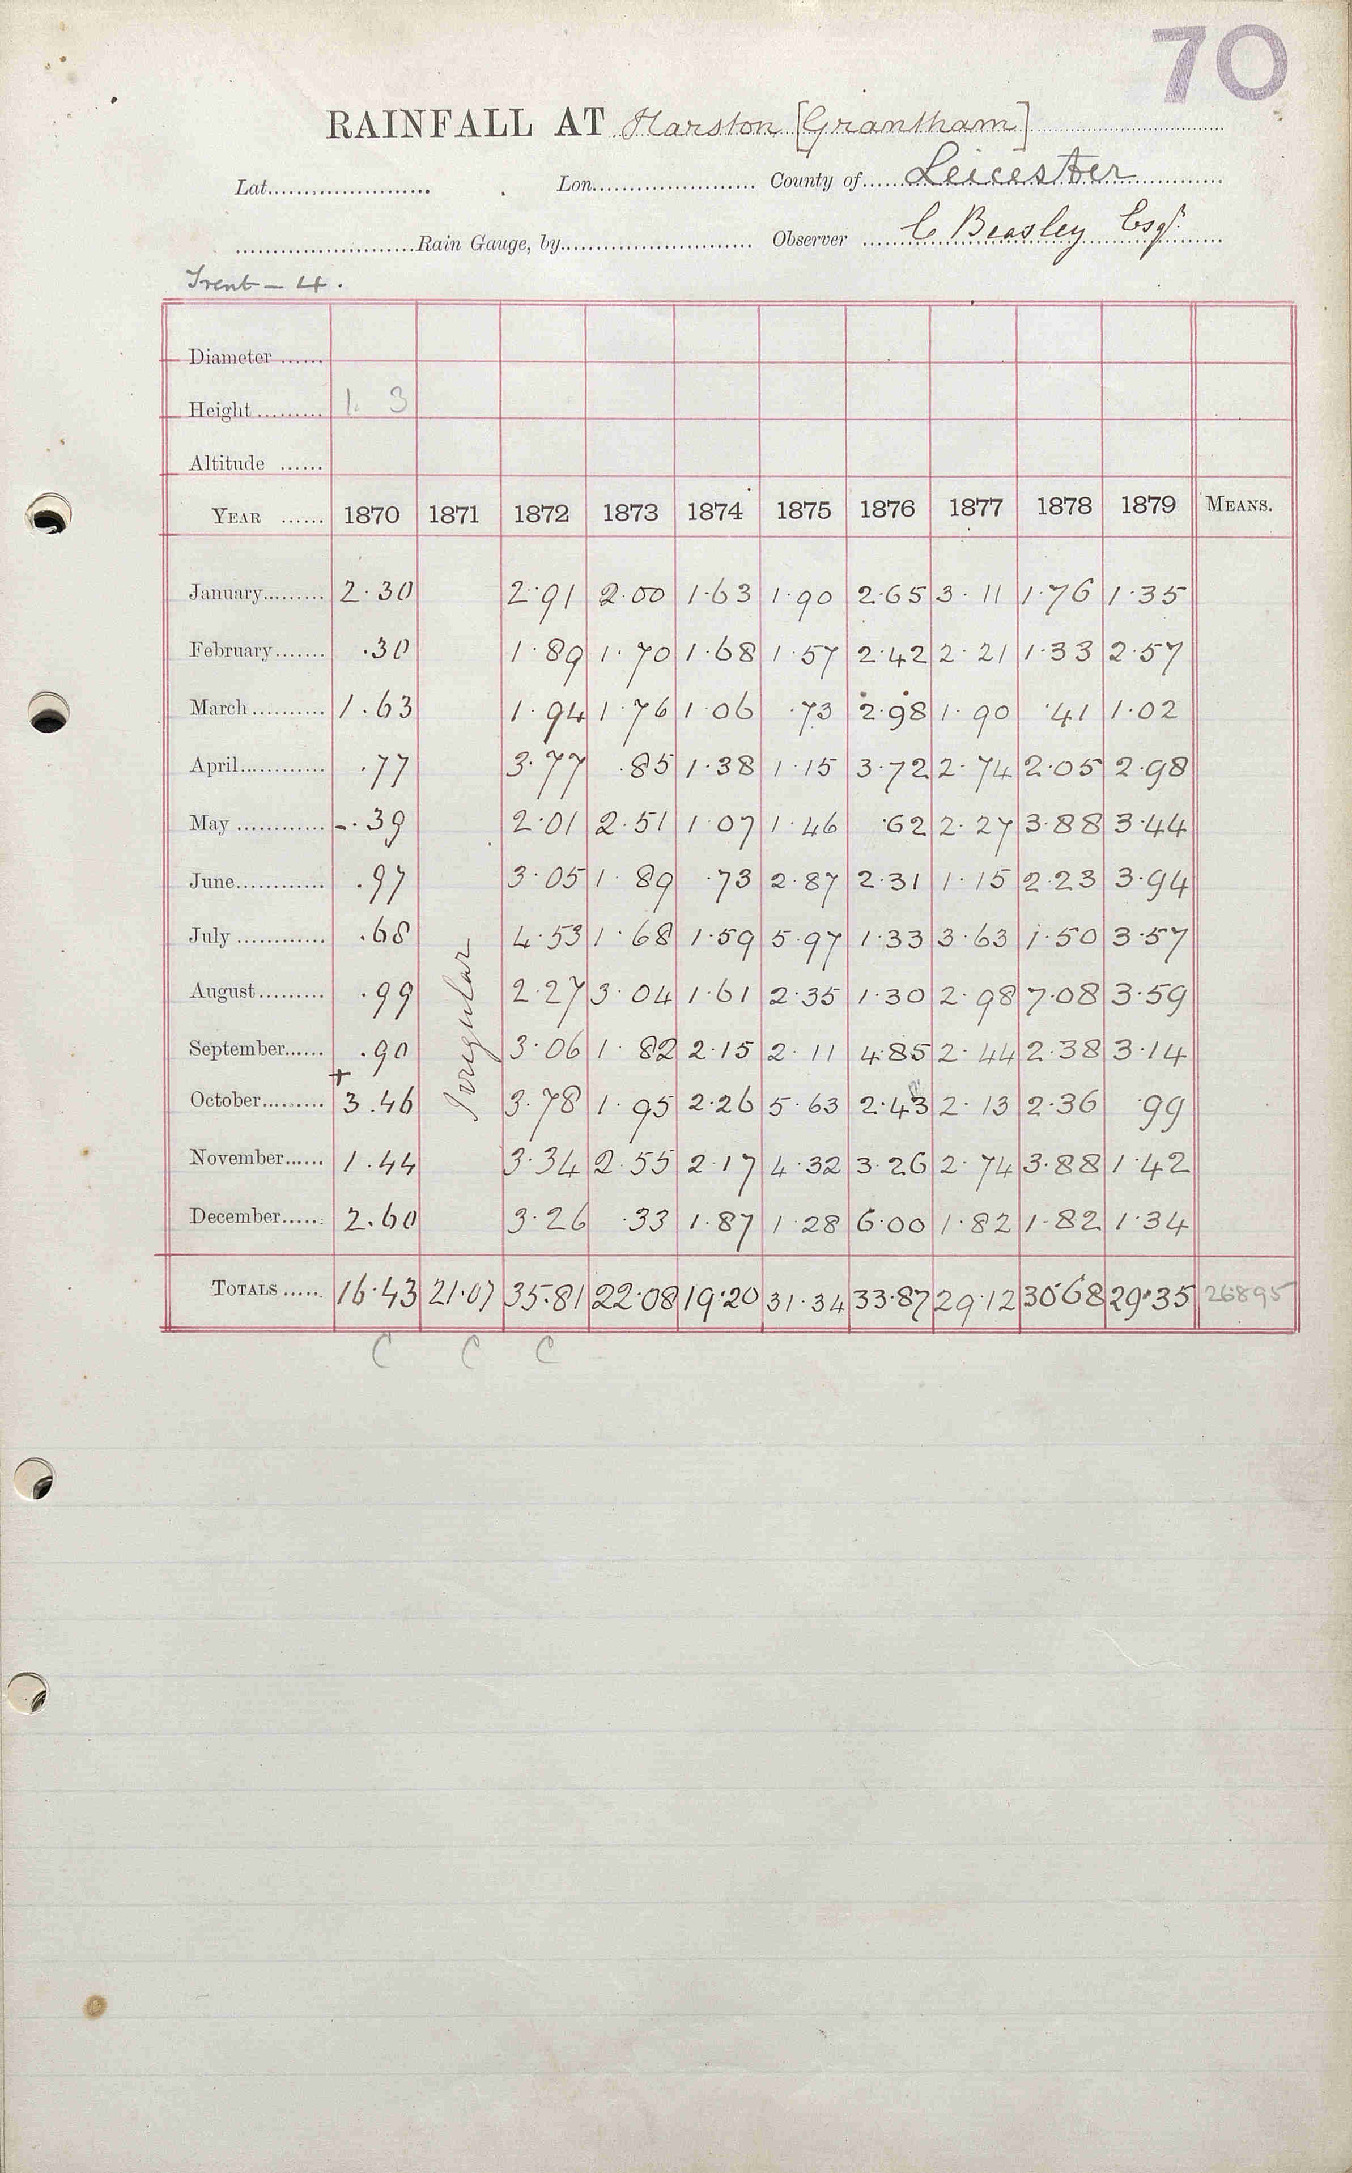 70
RAINFALL AT Harston [Grantham]
Lat. Lon. County of Leicester
Rain Gauge, by Observer C Beasley Esqr.
Trent - 4.
Diameter
Height 1. 3
Altitude
YEAR 1870 1871 1872 1873 1874 1875 1876 1877 1878 1879 MEANS.
January 2.30 2.91 2.00 1.63 1.90 2.65 3.11 1.76 1.35
February .30 1.89 1.70 1.68 1.57 2.42 2.21 1.33 2.57
March 1.63 1.94 1.76 1.06 .73 2.98 1.90 .41 1.02
April .77 3.77 .85 1.38 1.15 3.72 2.74 2.05 2.98
May -.39 2.01 2.51 1.07 1.46 .62 2.27 3.88 3.44
June .97 3.05 1.89 .73 2.87 2.31 1.15 2.23 3.94
July .68 4.53 1.68 1.59 5.97 1.33 3.63 1.50 3.57
August .99 Irregular 2.27 3.04 1.61 2.35 1.30 2.98 7.08 3.59
September .90 3.06 1.82 2.15 2.11 4.85 2.44 2.38 3.14
October + 3.46 3.78 1.95 2.26 5.63 2.43 2.13 2.36 .99
November 1.44 3.34 2.55 2.17 4.32 3.26 2.74 3.88 1.42
December 2.60 3.26 .33 1.87 1.28 6.00 1.82 1.82 1.34
TOTALS 16.43 21.07 35.81 22.08 19.20 31.34 33.87 29.12 30.68 29.35 26895
C C C